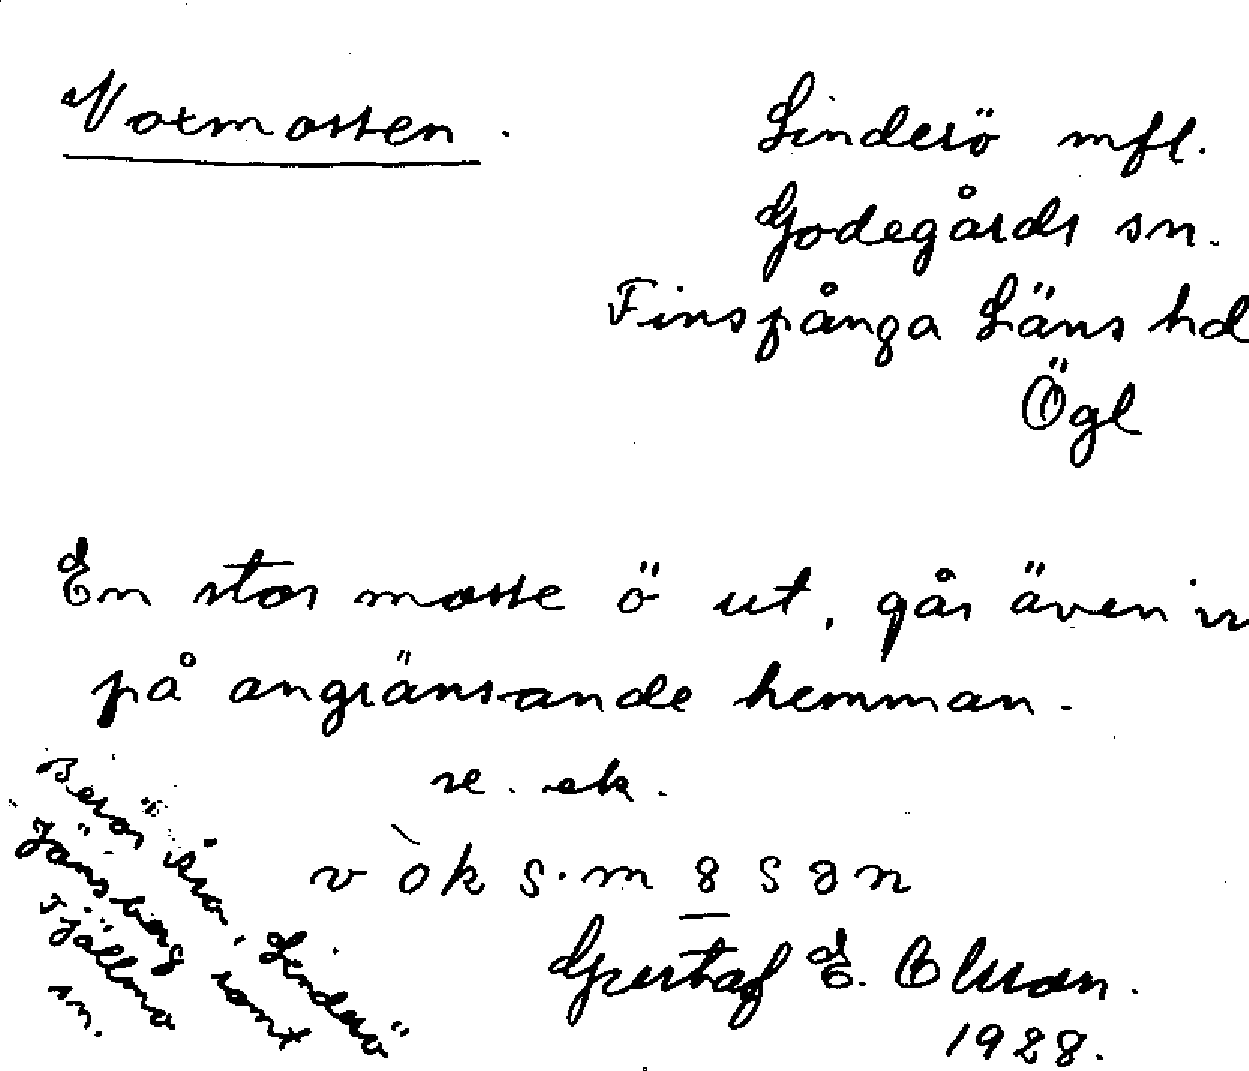 Voxmossen.
Linderö mfl.
Godegårds sn.
Finspånga Läns hd
Ögl
En stor mosse ö ut, går även in
på angränsande hemman.
se. ek.
vòks.m8sən
Gustaf E. Olsson.
1928.
Berör
Linderö
Jänsberg samt
Tjällmo
sn.